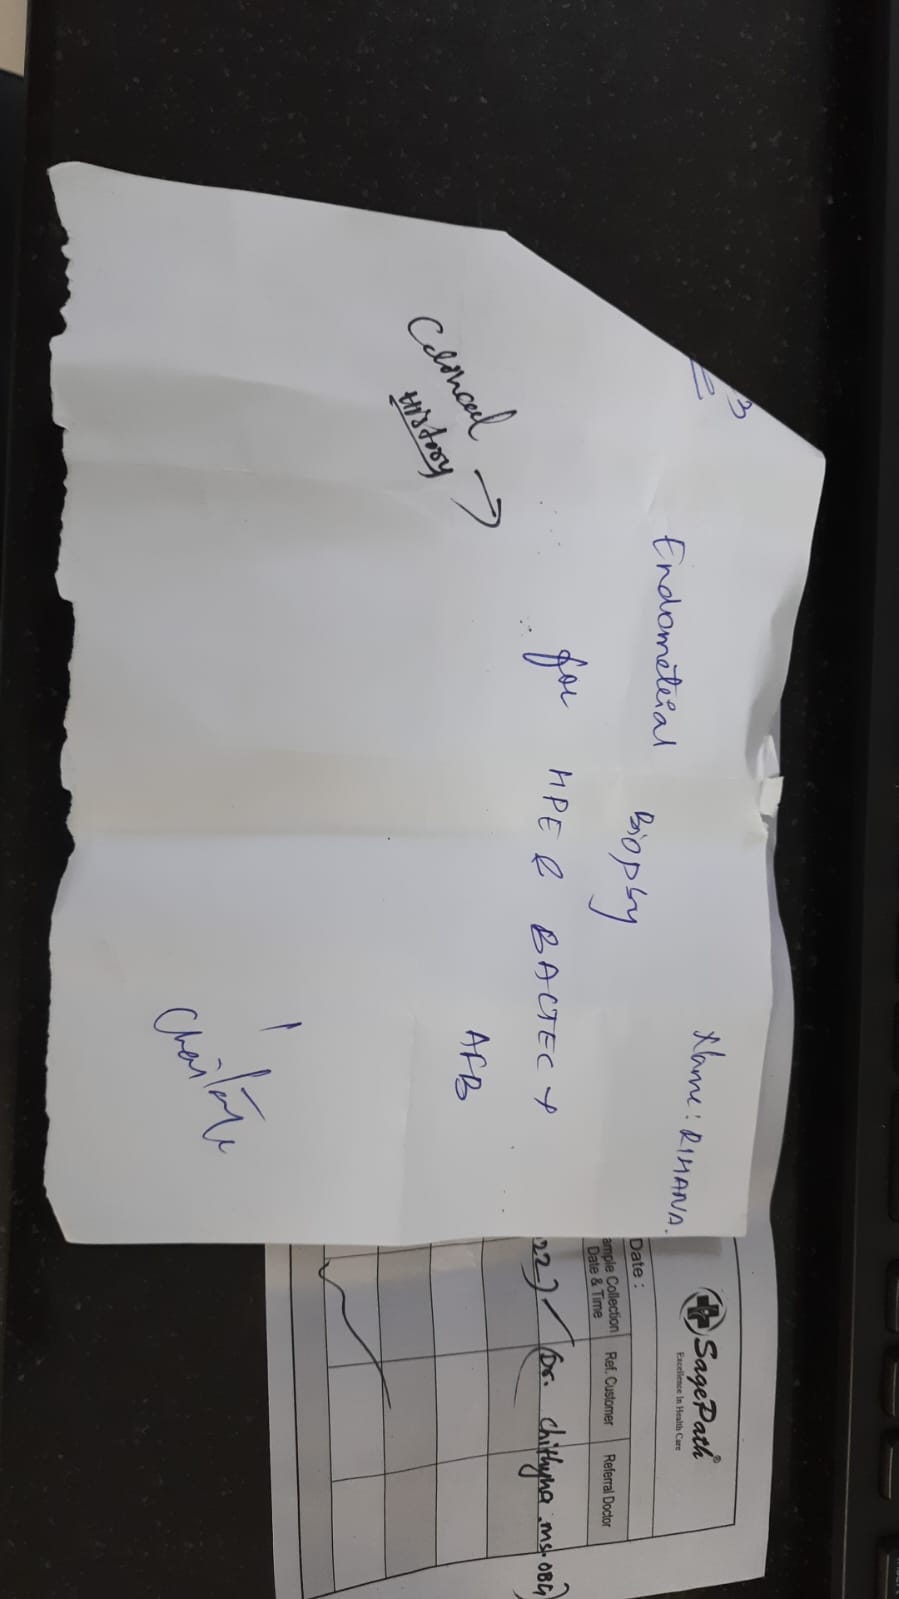 Name: RIHANA.
Endometrial Biopsy
for HPE & BACTEC +
AFB
History
SagePath®
Excellence In Health Care
Date :
ample Collection
Date & Time
Ref. Customer
Referral Doctor
22) / (Dr. Chithyna .ms.OBG)